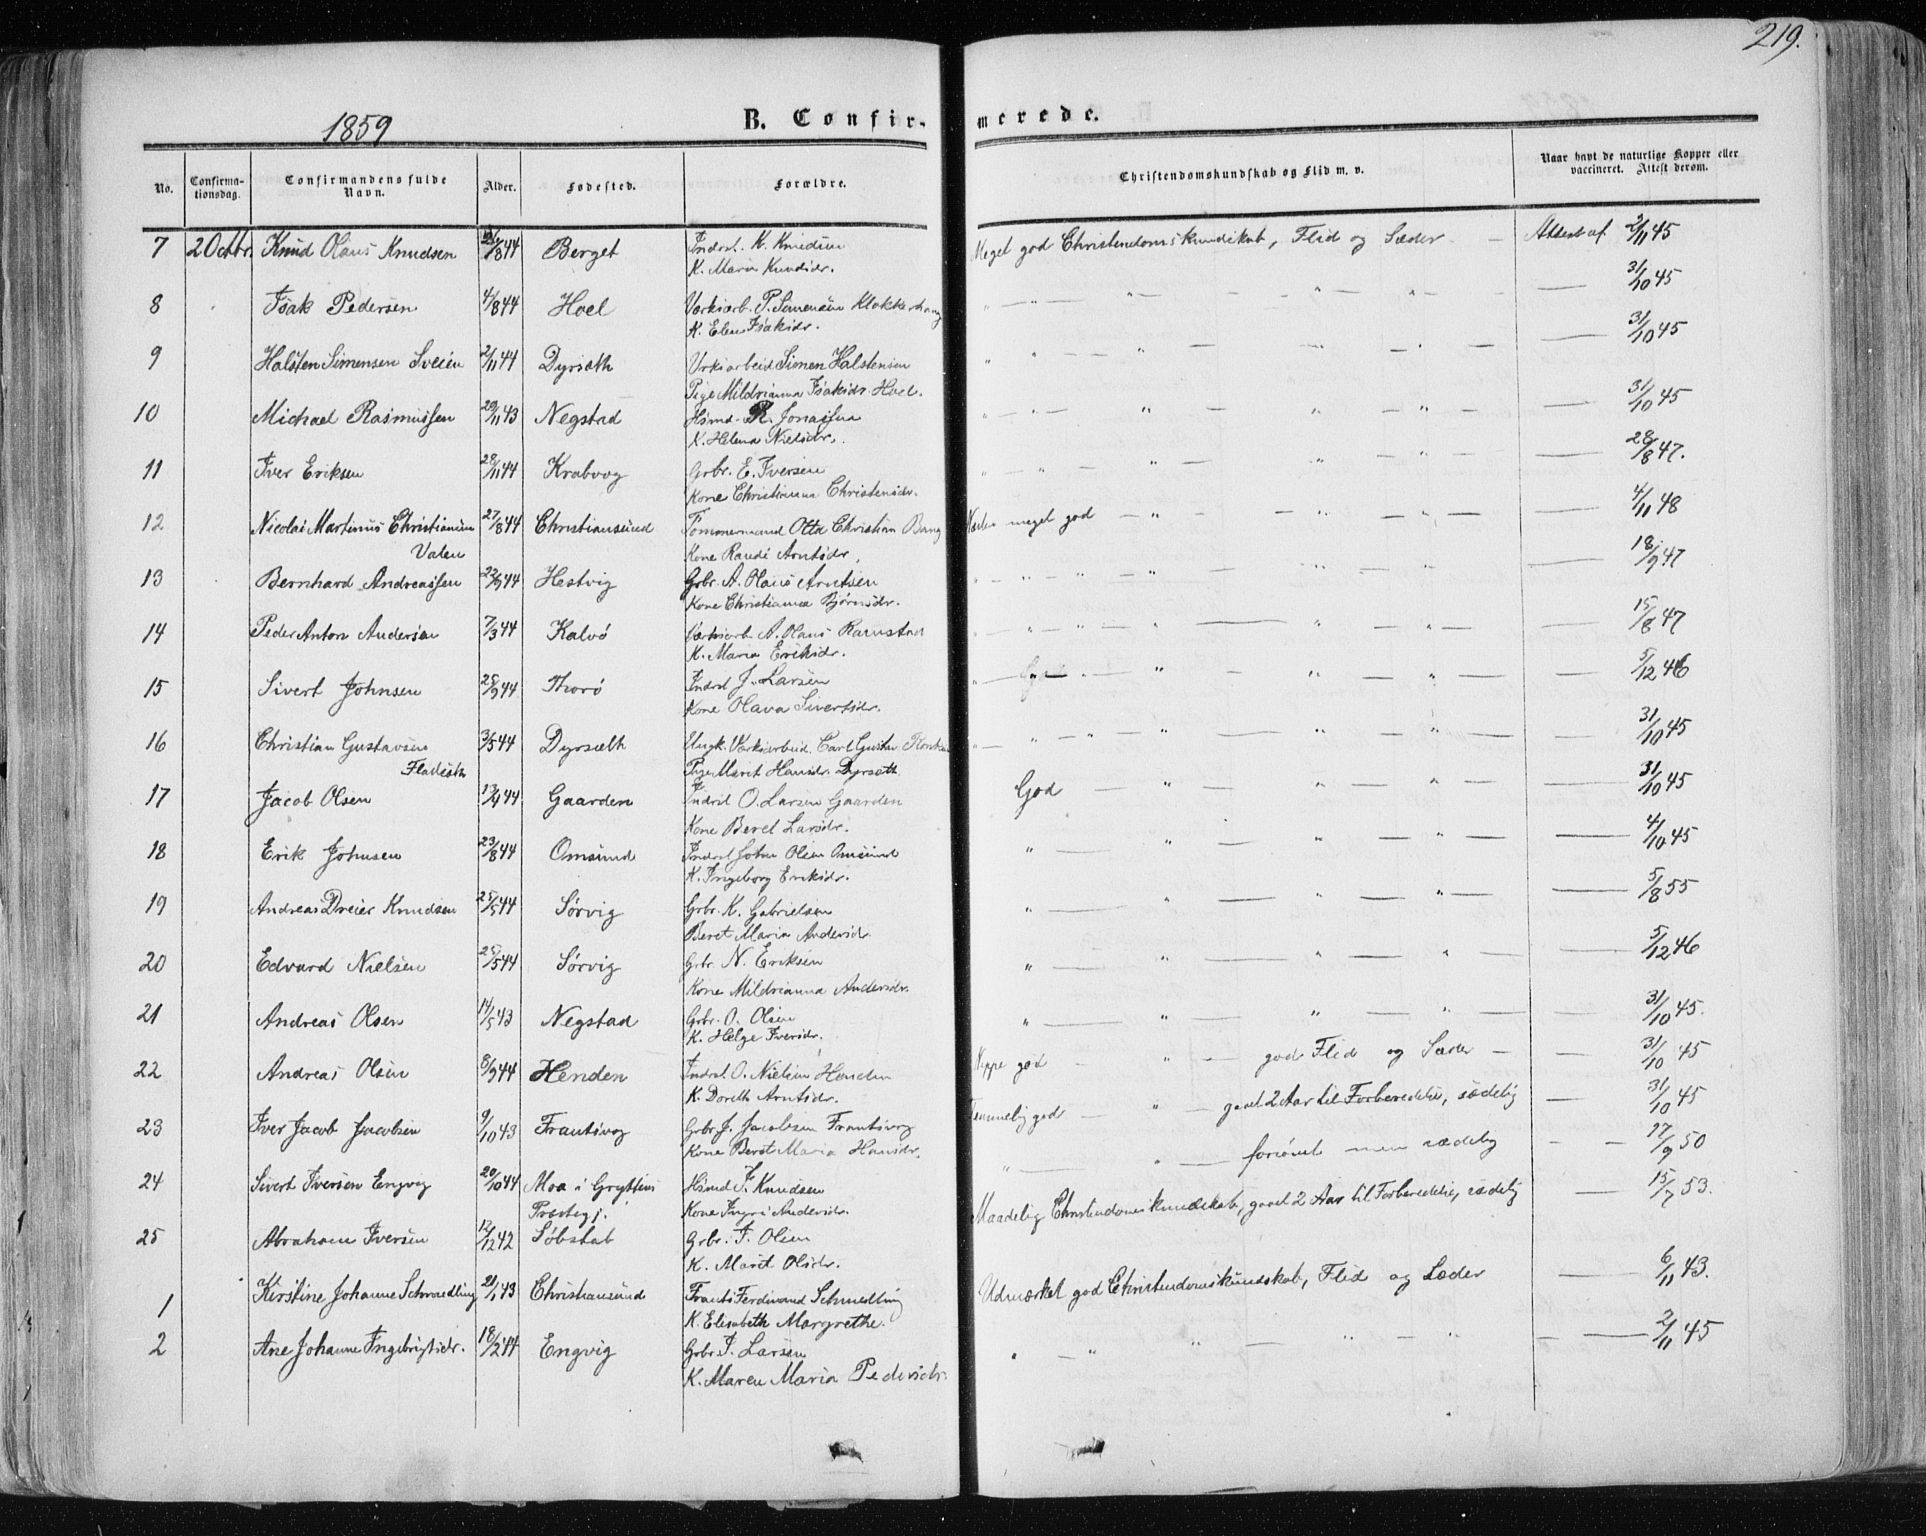 219.
1859
B. Confir-merede.
No. Confirmationsdag. Confirmandens fulde Navn. Alder. Fødested. Forældre. Christendomskundskab og Flid m. v. Naar havt de naturlige Kopper eller vaccineret. Attest derom.
7 2 Octbr. Knud Olaus Knudsen /8 44 Berget Indrst. K. Knudsen Meget god Christendomskundskab, Flid og Sæder — Attest af 2/11 45
K. Maria Knudsdr.
8 Isak Pedersen 4/8 44 Hoel Værksarb. P. Simensen Klokkerhaug " — " — " — " — 31/10 45
K. Elen Isaksdr.
9 Halsten Simensen Sveien 2/11 44 Dyrsæth Verksarbeid Simen Halstensen " — " — " — " — 31/10 45
Pige Mildrianna Isaksdr. Hoel.
10 Michael Rasmussen 29/11 43 Negstad Hsmd. R. Jonassen " — " — " — " — 31/10 45
K. Helena Nielsdr.
11 Iver Eriksen 28/11 44 Krabvog Grbr. E. Iversen " — " — " — " — 28/8 47.
Kone Christianna Christensdr.
12 Nicolai Martinus Christiansen 27/8 44 Christiansund Tømmermand Otto Christian Bang Næsten meget god — " — " — " — 4/11 48
Valen Kone Randi Arntsdr.
13 Bernhard Andreassen 22/9 44 Hestvig Grbr. A. Olaus Arntsen " — " — " — " — 18/9 47
Kone Christianna Bjørnsdr.
14 Peder Anton Andersen 7/3 44 Kalvø Værksarb. A. Olaus Ramstad " — " — " — " — 15/8 47
K. Maria Eriksdr.
15 Sivert Johnsen 25/9 44 Thorø Indrst J. Larsen " — God — " — " — " — 5/12 46
Kone Olava Sivertsdr.
16 Christian Gustavsen 3/5 44 Dyrsæth Ungk. Værksarbeid. Carl Gustav " — " — " — " — 31/10 45
Fladsæth Pige Marit Hansdr. Dyrsæth
17 Jacob Olsen 13/9 44 Gaarden Indrst O. Larsen Gaarden God — " — " — " — 31/10 45
Kone Beret Larsdr.
18 Erik Johnsen 23/8 44 Omsund Indrst John Olsen Omsund " — " — " — " — 4/10 45
K. Ingeborg Eriksdr.
19 Andreas Dreier Knudsen 25/5 44 Sørvig Grbr. K. Gabrielsen " — " — " — " — 5/8 55
Beret Maria Andersdr
20 Edvard Nielsen 25/5 44 Sørvig Grbr. N. Eriksen " — " — " — " — 5/12 46
Kone Mildrianna Andersdr.
21 Andreas Olsen 14/5 43 Negstad Grbr. O. Olsen " — " — " — " — 31/10 45.
K. Helge Iversdr.
22 Andreas Olsen 8/9 44 Henden Indrst. O. Nielsen Henden Neppe god — " — god Flid og Sæder — 31/10 45
K. Doreth Arntsdr.
23 Iver Jacob Jacobsen 9/10 43 Frantsvog Grbr. J. Jacobsen Frantsvog Temmelig god — " — gaaet 2 Aar til Forberedelse, sædelig — 31/10 45
Kone Beret Maria Hansdr.
24 Sivert Iversen Engvig 20/10 44 Moa i Gryttens Hsmd I. Knudsen " — " — forsømt men sædelig — 17/9 50
Præstegj. Kone Ingri Andersdr.
25 Abraham Iversen 12/12 42 Søbstab Grbr. I. Olsen Maadelig Christendomskundskab, gaaet 2 Aar til Forberedelse, sædelig — 15/7 53.
K. Marit Olsdr.
1 Kirstine Johanne Schmedling 21/1 43 Christiansund Frants Ferdinand Schmedling Udmærket god Christendomskundskab, Flid og Sæder — 6/11 43.
K. Elisabeth Margrethe.
2 Ane Johanne Ingebrigtsdr. 18/2 44 Engvig Grbr. I. Larsen " — " — " — " — 2/11 45
K. Maren Maria Pedersdr.